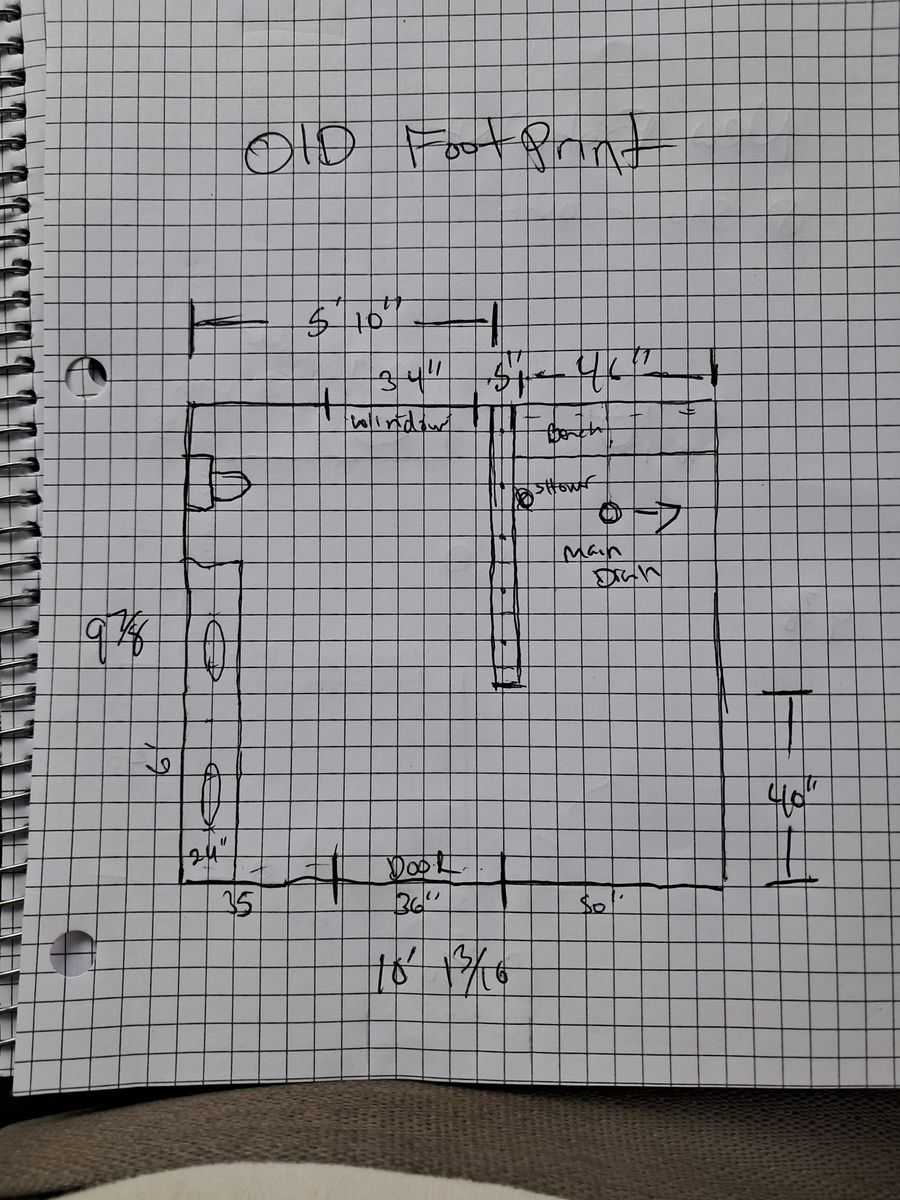 OlD FootPrint
5' 10"
34" 5" 46"
Window
Bench
SHowr
Main
Drain
9 7/8
6'
40"
24"
DOOR
35 36" 50"
10' 1 3/16